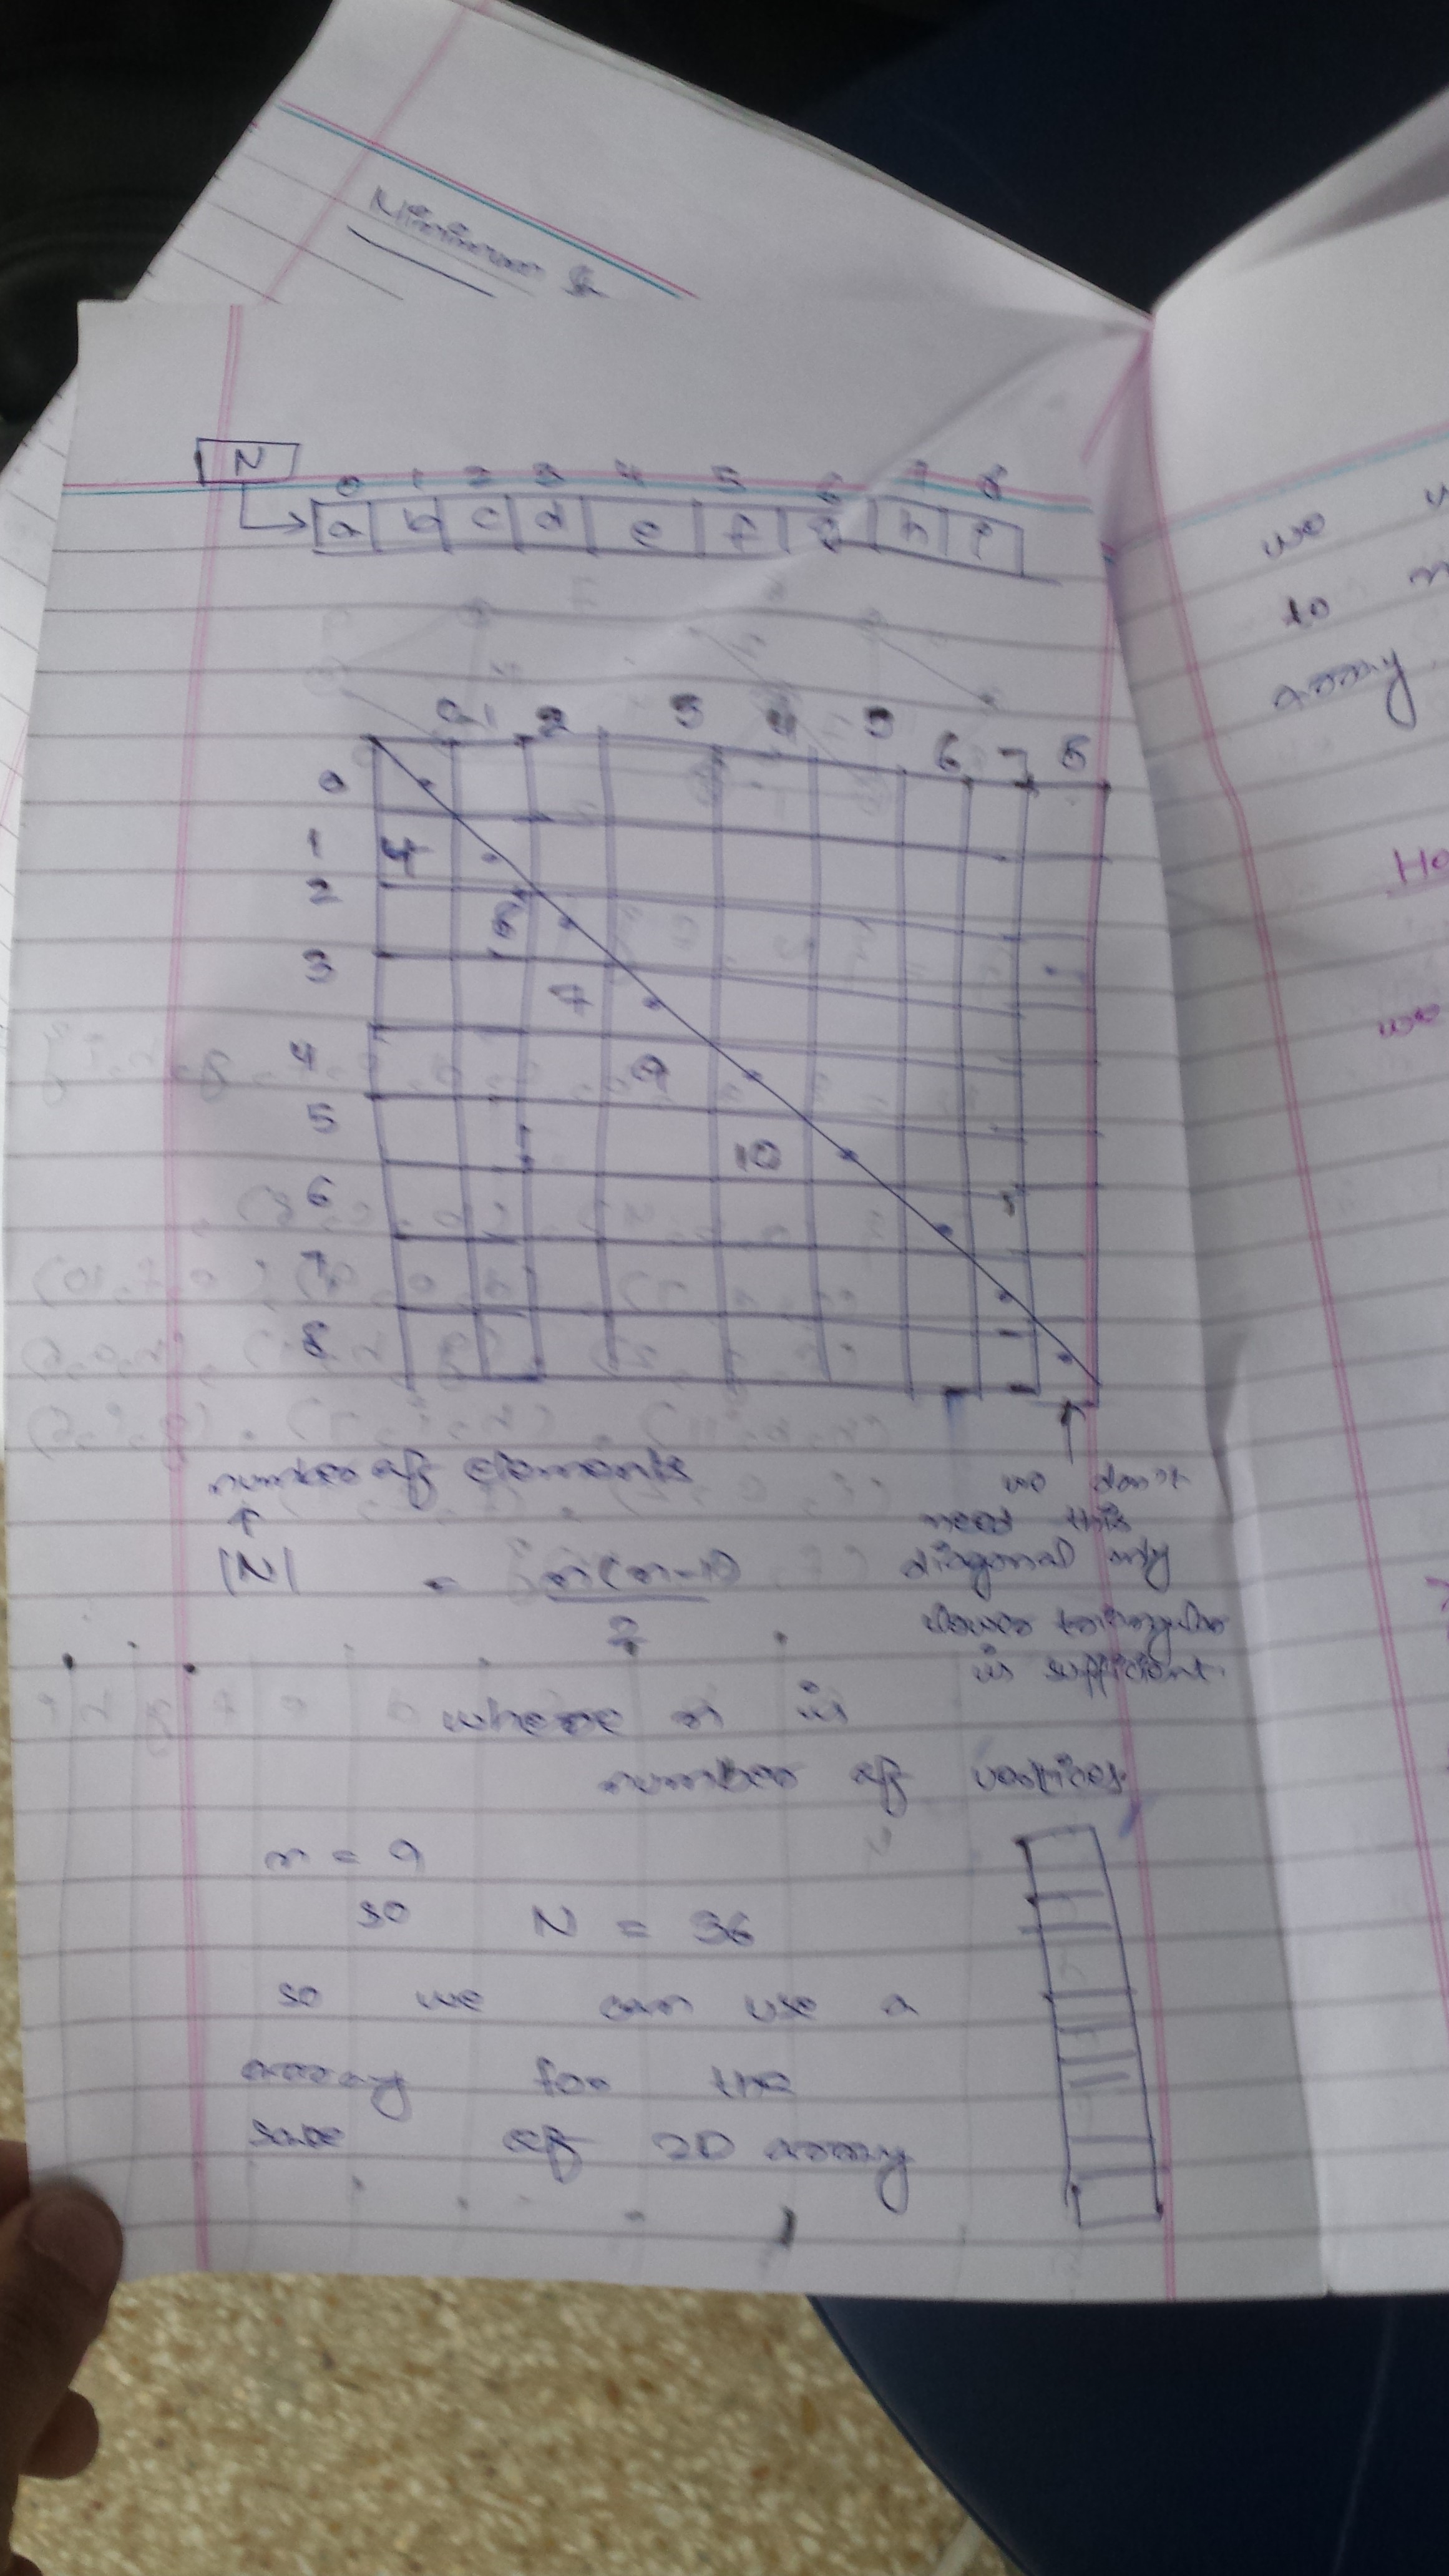 Minimum
N
0 1 2 3 4 5 6 7 8
a b c d e f g h i
0 1 2 3 4 5 6 7 8
0
1 4
2 8
3 7
4 9
5 10
6
7
8
number of elements
|N| = n(n-1)
2
we don't
need this
diagonal only
lower triangular
is sufficient.
where n is
number of vertices
n = 9
so N = 36
so we can use a
array for the
sake of 2D array
we
to
array
Ho
we